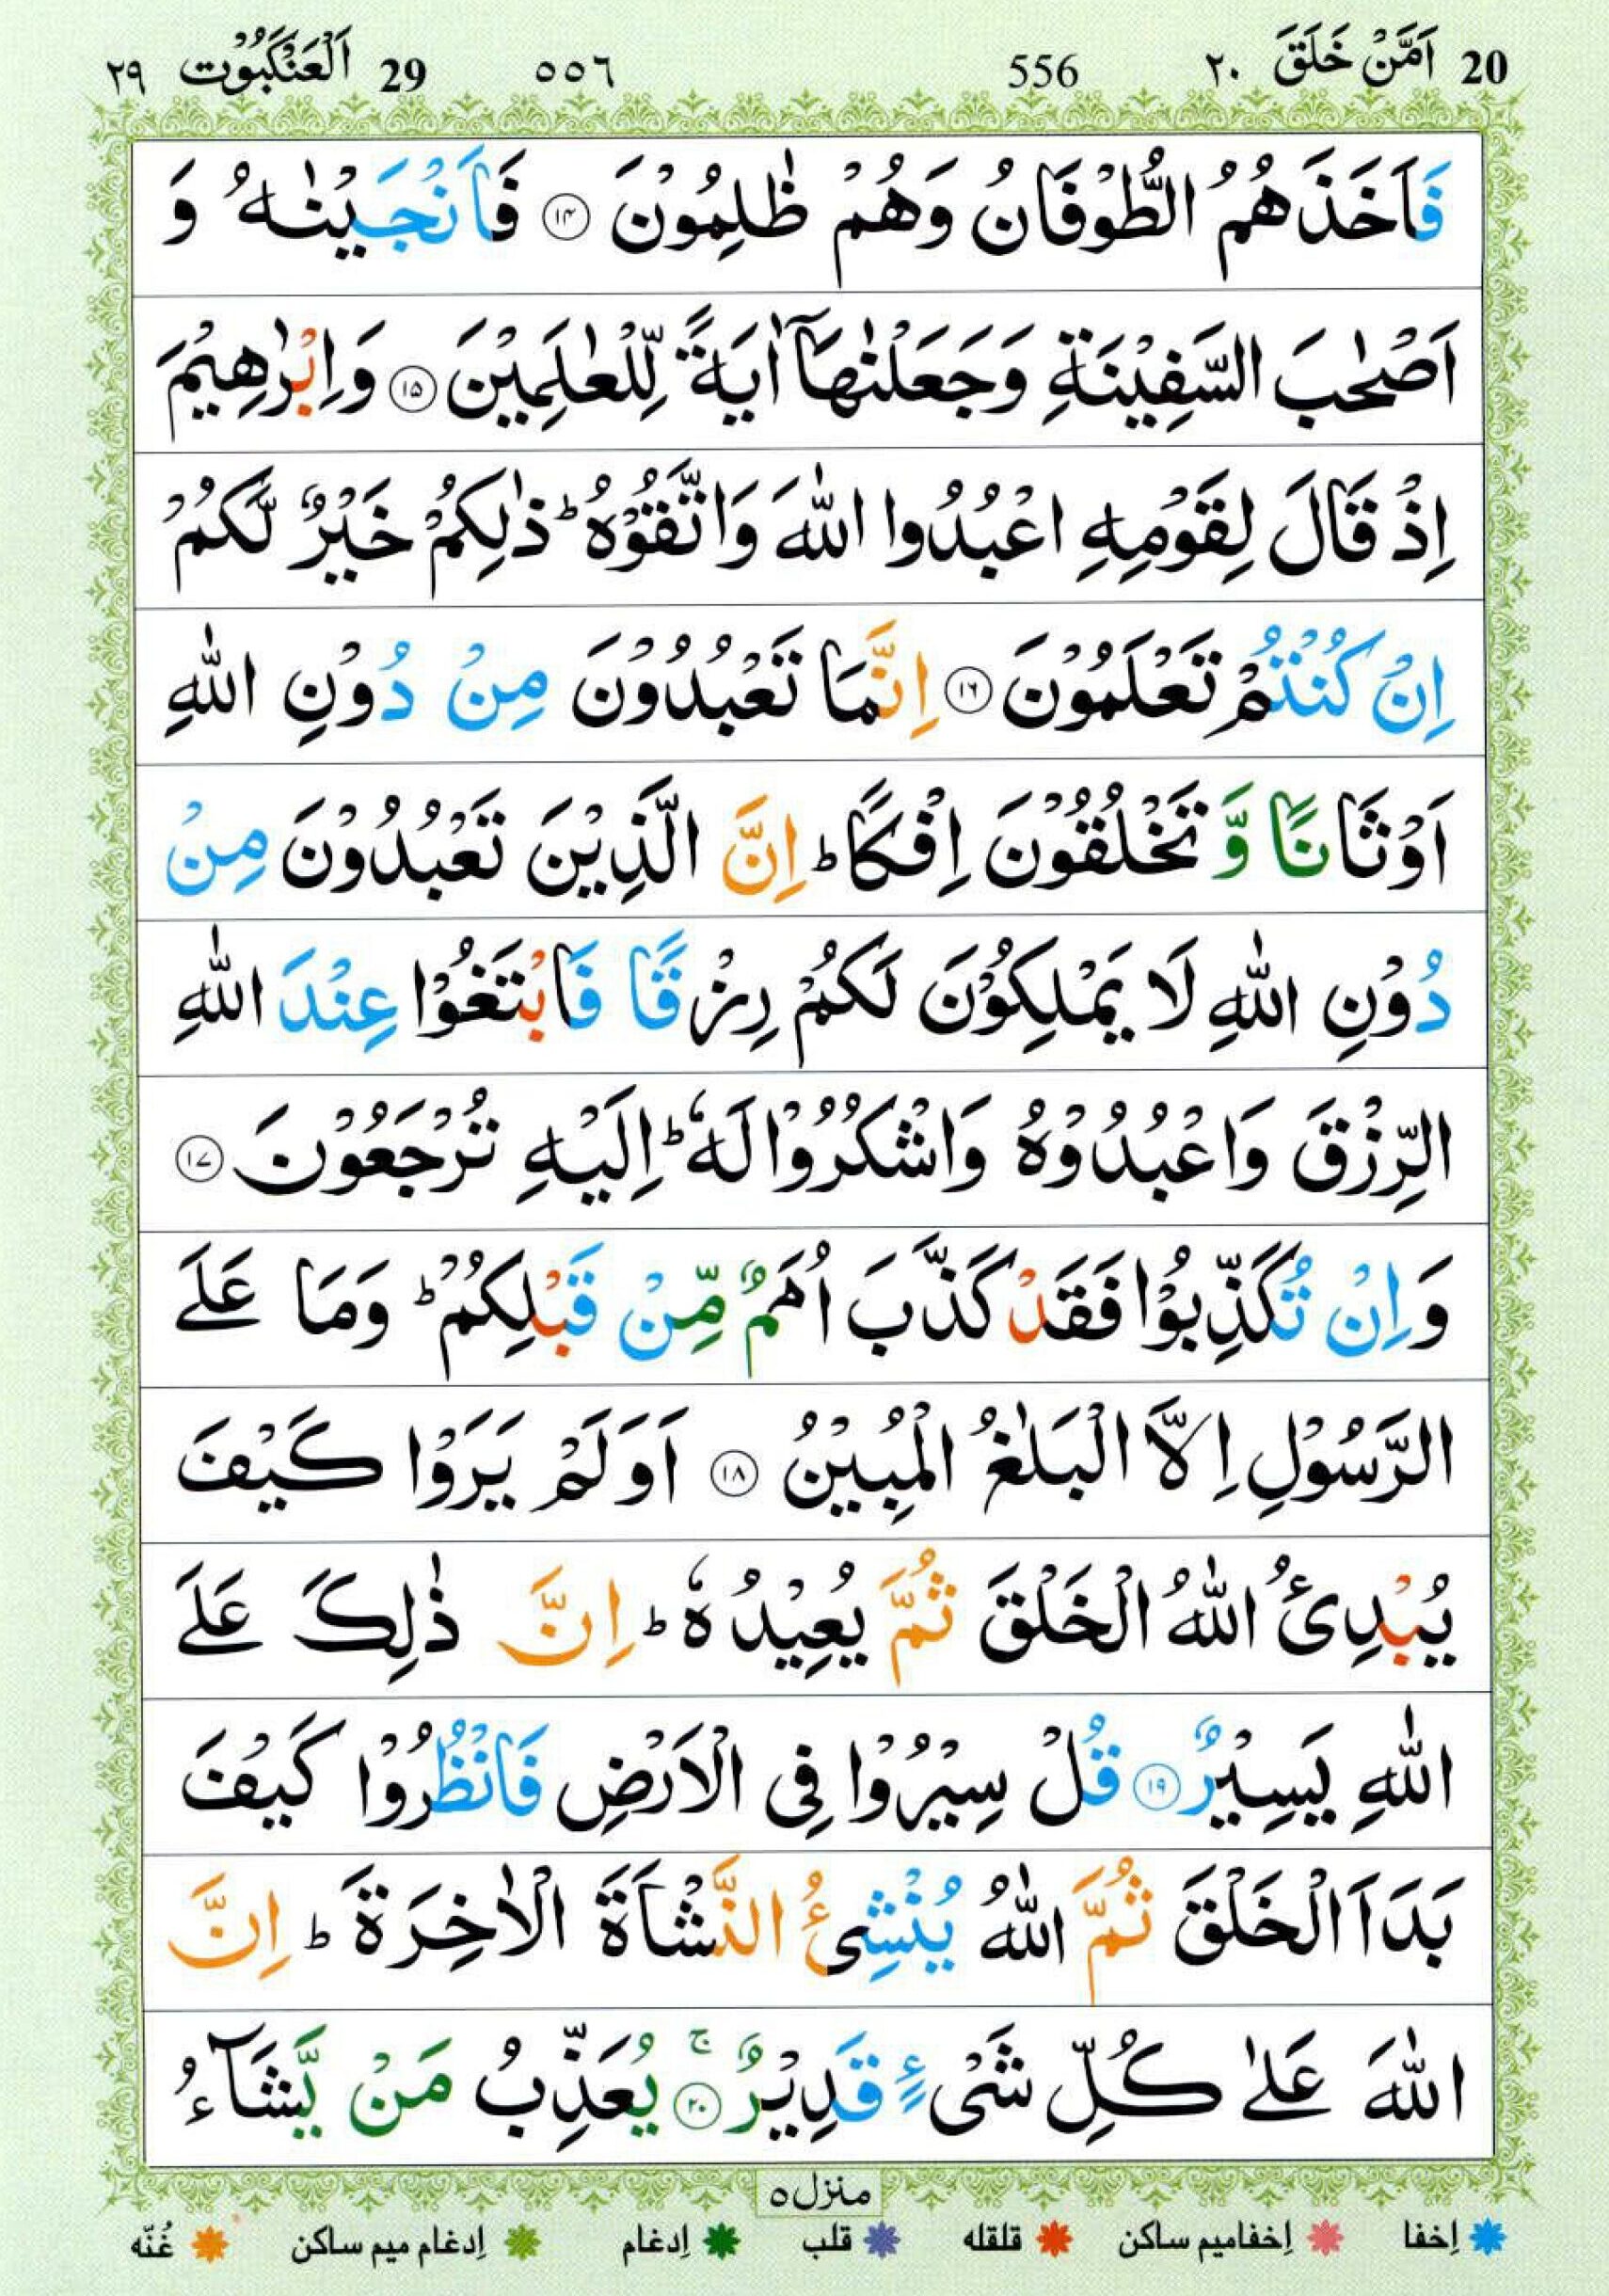 20 اَمَّنْ خَلَقَ ٢٠ 556 ٥٥٦ 29 اَلْعَنْكَبُوْت ٢٩
فَاَخَذَهُمُ الطُّوْفَانُ وَهُمْ ظٰلِمُوْنَ ۝۱۴ فَاَنْجَيْنٰهُ وَ
اَصْحٰبَ السَّفِيْنَةِ وَجَعَلْنٰهَاۤ اٰيَةً لِّلْعٰلَمِيْنَ ۝۱۵ وَاِبْرٰهِيْمَ
اِذْ قَالَ لِقَوْمِهِ اعْبُدُوا اللّٰهَ وَاتَّقُوْهُ ؕ ذٰلِكُمْ خَيْرٌ لَّكُمْ
اِنْ كُنْتُمْ تَعْلَمُوْنَ ۝۱۶ اِنَّمَا تَعْبُدُوْنَ مِنْ دُوْنِ اللّٰهِ
اَوْثَانًا وَّ تَخْلُقُوْنَ اِفْكًا ؕ اِنَّ الَّذِيْنَ تَعْبُدُوْنَ مِنْ
دُوْنِ اللّٰهِ لَا يَمْلِكُوْنَ لَكُمْ رِزْقًا فَابْتَغُوْا عِنْدَ اللّٰهِ
الرِّزْقَ وَاعْبُدُوْهُ وَاشْكُرُوْا لَهٗ ؕ اِلَيْهِ تُرْجَعُوْنَ ۝۱۷
وَاِنْ تُكَذِّبُوْا فَقَدْ كَذَّبَ اُمَمٌ مِّنْ قَبْلِكُمْ ؕ وَمَا عَلَى
الرَّسُوْلِ اِلَّا الْبَلٰغُ الْمُبِيْنُ ۝۱۸ اَوَلَمْ يَرَوْا كَيْفَ
يُبْدِئُ اللّٰهُ الْخَلْقَ ثُمَّ يُعِيْدُهٗ ؕ اِنَّ ذٰلِكَ عَلَى
اللّٰهِ يَسِيْرٌ ۝۱۹ قُلْ سِيْرُوْا فِى الْاَرْضِ فَانْظُرُوْا كَيْفَ
بَدَاَ الْخَلْقَ ثُمَّ اللّٰهُ يُنْشِئُ النَّشْاَةَ الْاٰخِرَةَ ؕ اِنَّ
اللّٰهَ عَلٰى كُلِّ شَىْءٍ قَدِيْرٌ ۝۲۰ ۚ يُعَذِّبُ مَنْ يَّشَآءُ
منزل ٥
اِخفا اِخفامیم ساکن قلقله قلب اِدغام اِدغام میم ساکن غُنّه